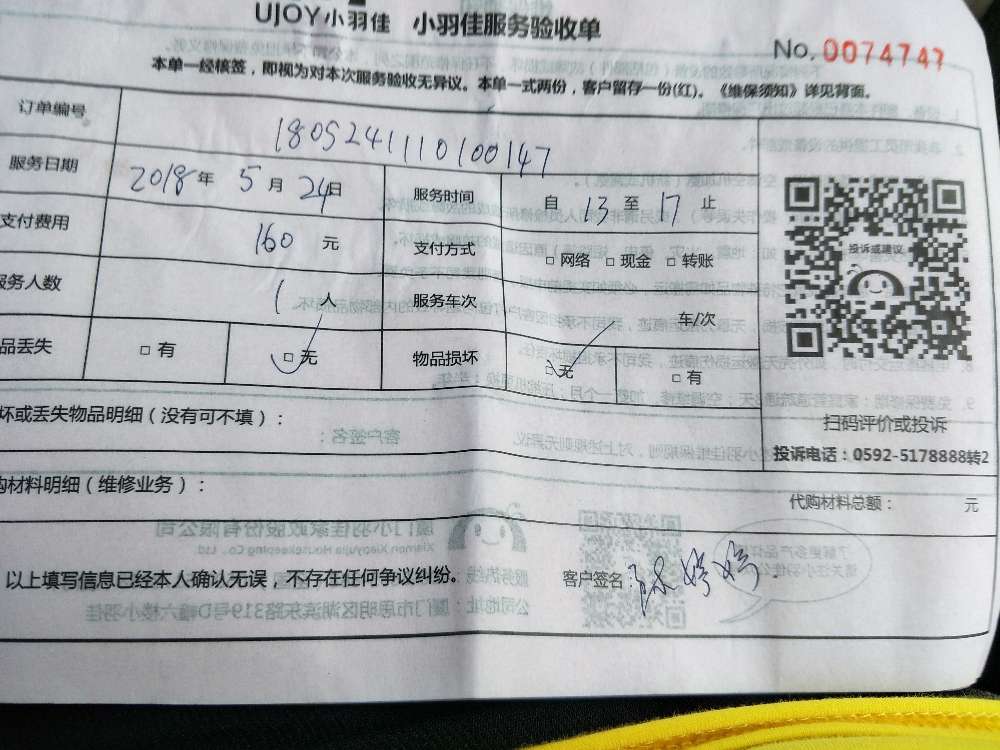 UJOY小羽佳 小羽佳服务验收单
No. 0074747
本单一经核签，即视为对本次服务验收无异议。本单一式两份，客户留存一份(红)。《维保须知》详见背面。
订单编号 1805241110100147
服务日期 2018年 5月 24日 服务时间 自 13 至 17 止
支付费用 160 元 支付方式 □ 网络 □ 现金 □ 转账
服务人数 1 人 服务车次 车/次
品丢失 □ 有 □ 无 物品损坏 无 □ 有
坏或丢失物品明细（没有可不填）：
投诉或建议
扫码评价或投诉
投诉电话：0592-5178888转2
购材料明细（维修业务）：
代购材料总额： 元
以上填写信息已经本人确认无误，不存在任何争议纠纷。
客户签名：